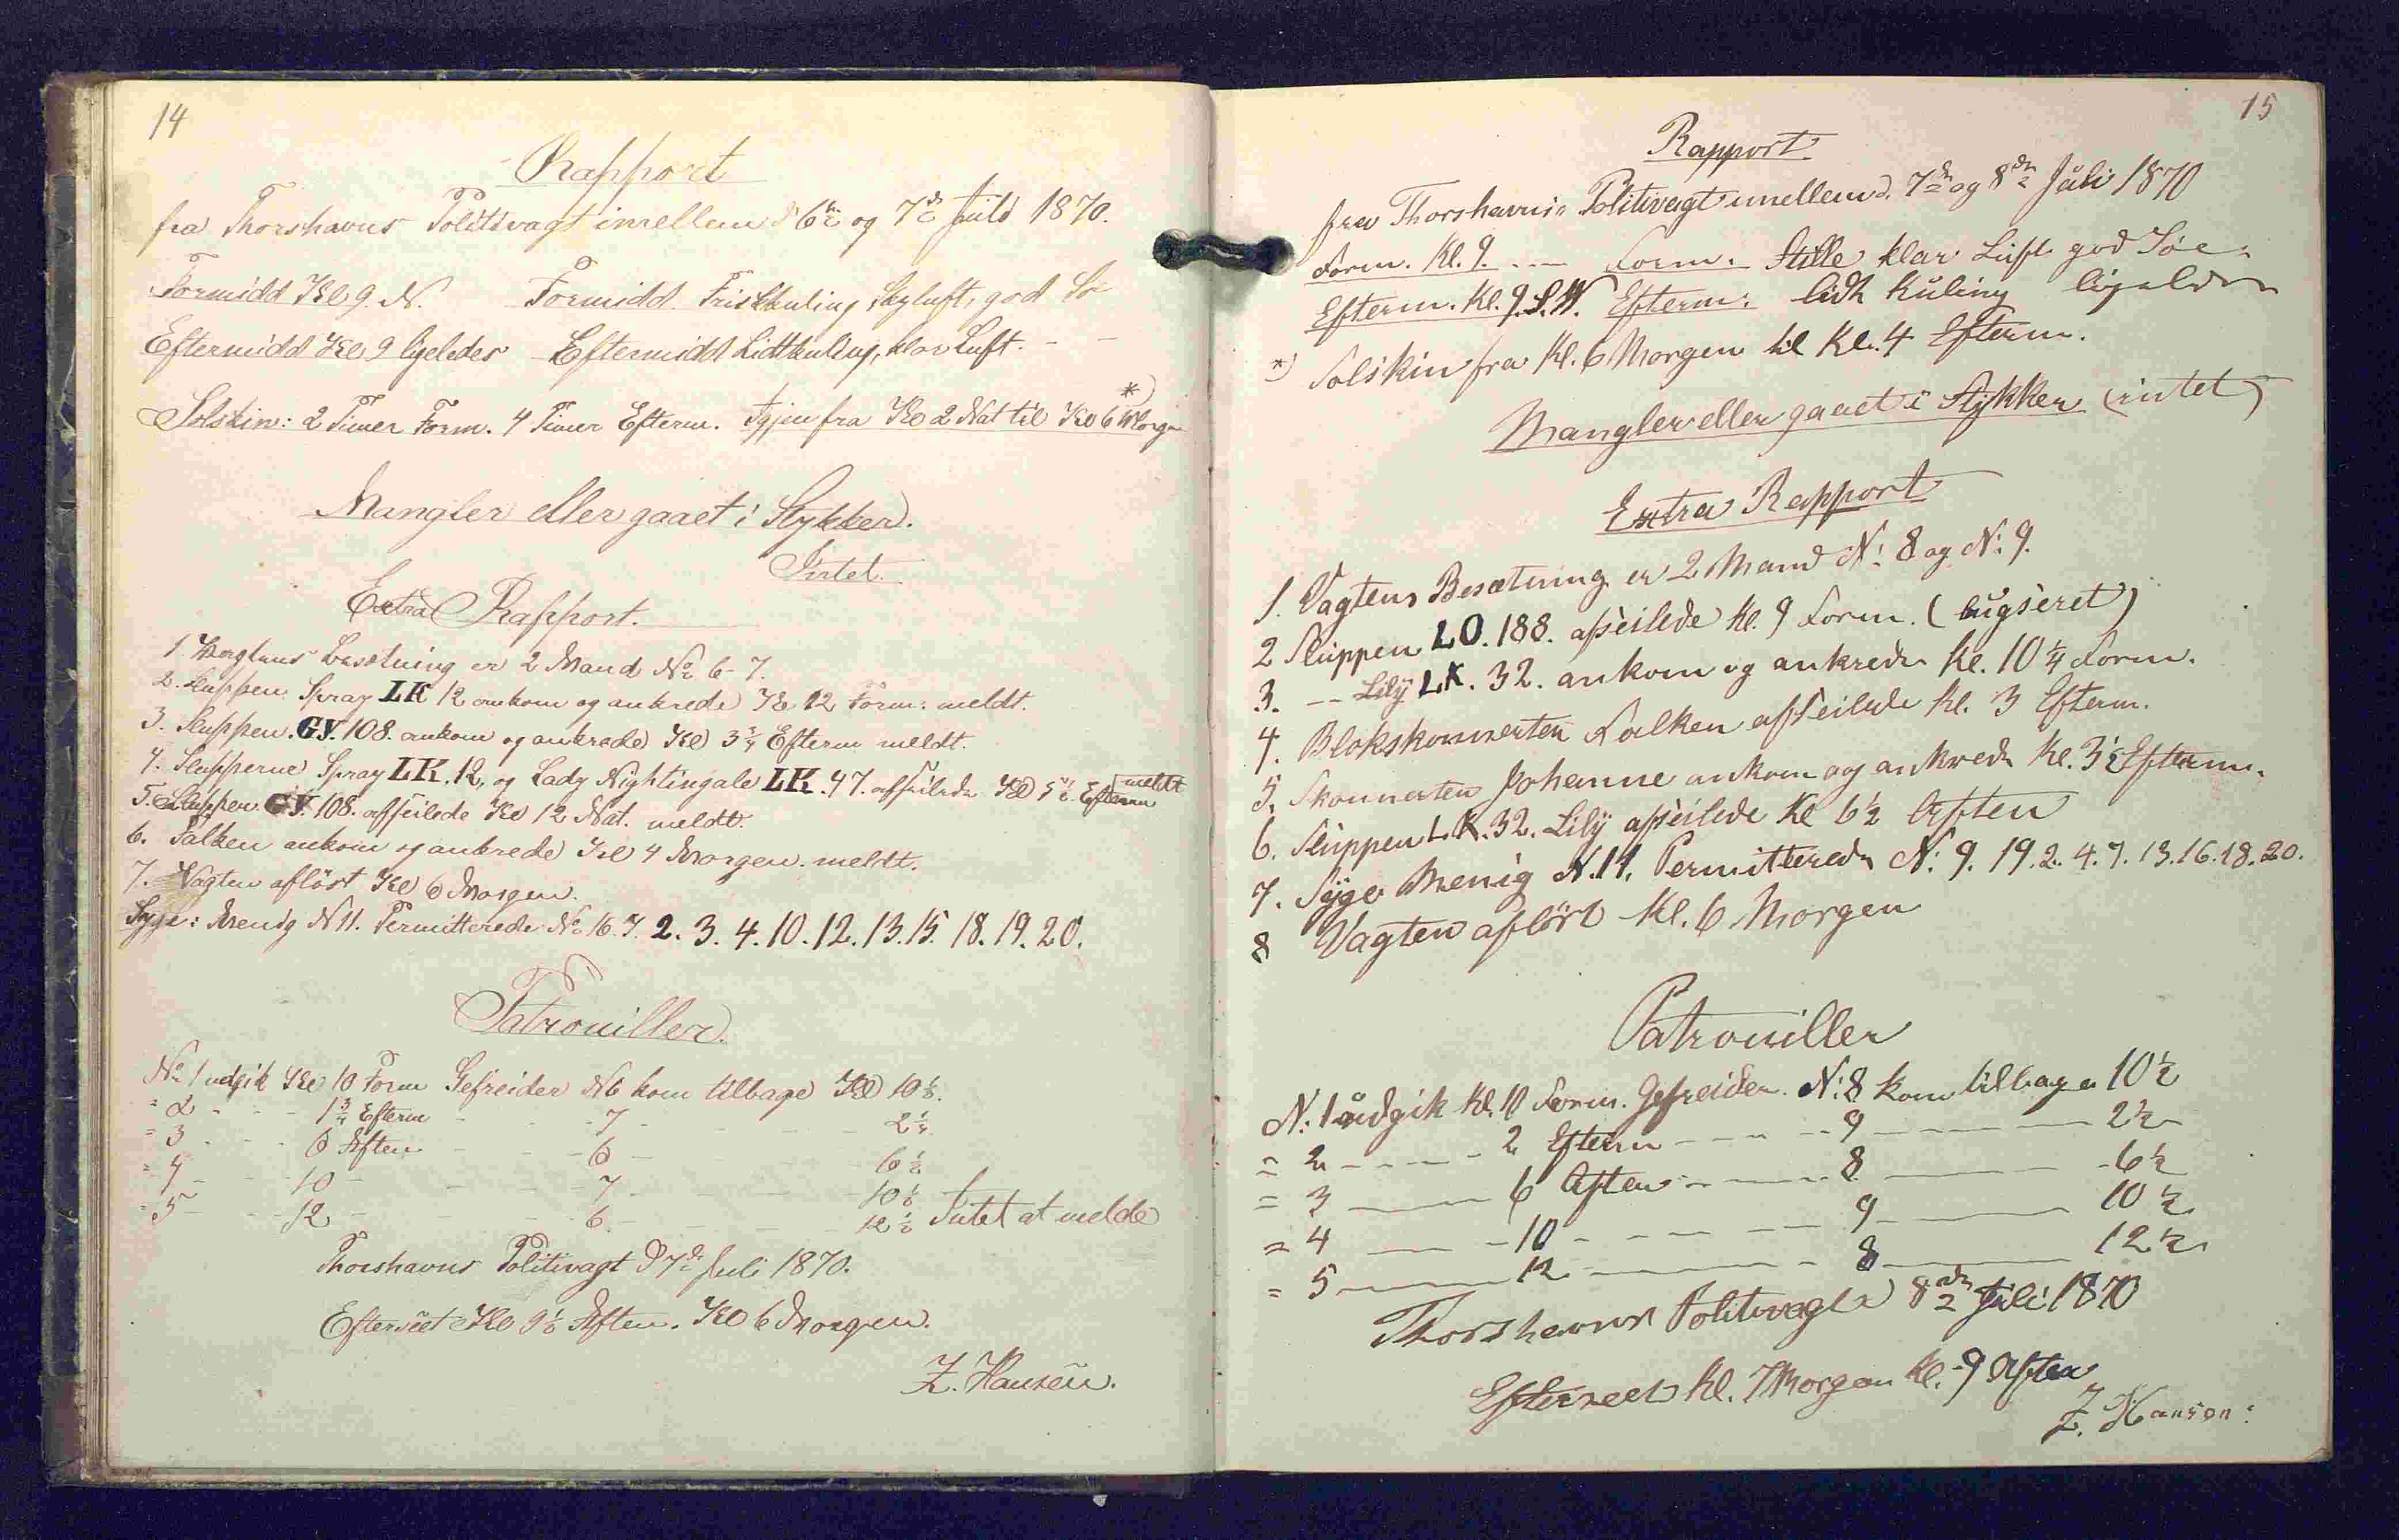 14
Rapport
fra Thorshavns Politivagt imellem d 6te og 7de Juli 1870.
Formidd Kl 9. N. Formidd. Frisk kuling, Skyluft, god Sø
Eftermidd Kl 9 ligeledes Eftermidd Lidt kuling, klar Luft. - -
Solskin: 2 Timer Form. 4 Timer Efterm. fra Kl 2 Nat til Kl 6 Morgen *)
Mangler eller gaaet i Stykker.
Intet.
Extra Rapport.
1. Vagtens Besætning er 2 Mand No 6 - 7.
2. Sluppen Spray LK 12 ankom og ankrede Kl 12 Form. meldt.
3. Sluppen GY. 108. ankom og ankrede Kl 3 3/4 Efterm meldt.
4. Slupperne Spray LK. 12, og Lady Nightingale LK. 47. afseilede Kl 5 1/2 Efterm meldt
5. Sluppen GY. 108. afseilede Kl 12 Nat. meldt.
6. Falken ankom og ankrede Kl 4 Morgen. meldt.
7. Vagten afløst Kl 6 Morgen.
Syge: Menig N 11. Permitterede No 16. 7. 2. 3. 4. 10. 12. 13. 15. 18. 19. 20.
Patrouiller.
No 1 udgik Kl 10 Form Gefreider N 6 kom tilbage Kl 10 1/2.
" 2 - - - 1 3/4 Efterm - - 7 - - - 2 1/4
" 3 - - - 6 Aften - - 6 - - - 6 1/2
" 4 - - - 10 - - - 7 - - - 10 1/2
" 5 - - - 12 - - - 6 - - - 12 1/2 Intet at melde
Thorshavns Politivagt d 7de Juli 1870.
Efterseet Kl 9 1/2 Aften. Kl 6 Morgen.
Z. Hansen.
15
Rapport
fra Thorshavns Politivagt imellem d. 7de og 8de Juli 1870
Form. Kl. 9. --- Form. Stille klar Luft god Søe.
Efterm. Kl. 9. S.W. Efterm. lidt Kuling ligeledes
*) Solskin fra Kl. 6 Morgen til Kl. 4 Efterm.
Mangler eller gaaet i Stykker (intet)
Extra Rapport
1. Vagtens Besætning er 2 Mand N: 8 og N: 9.
2 Sluppen LO. 188. afseilede Kl. 9 Form. (bugseret)
3. -- Lily LK. 32. ankom og ankrede Kl. 10 1/4 Form.
4. Blokskonnerten Falken afseilede Kl. 3 Efterm.
5. Skonnerten Johanne ankom og ankrede Kl. 3 1/2 Efterm.
6. Sluppen LK. 32. Lily afseilede Kl 6 1/2 Aften
7. Syge Menig N. 11. Permitterede N: 9. 19. 2. 4. 7. 13. 16. 18. 20.
8 Vagten afløst Kl. 6 Morgen
Patrouiller
N: 1 udgik Kl. 10 Form. Gefreider N: 8 kom tilbage 10 1/2
= 2 - - - - 2 Efterm - - - - 9 - - - 2 1/2
= 3 - - - 6 Aften - - - 8 - - - 6 1/2
= 4 - - - 10 - - - - 9 - - - 10 1/2
= 5 - - - 12 - - - - 8 - - - 12 1/2
Thorshavns Politivagt d 8de Juli 1870
Efterseet Kl. 7 Morgen Kl. 9 Aften
Z. Hansen.